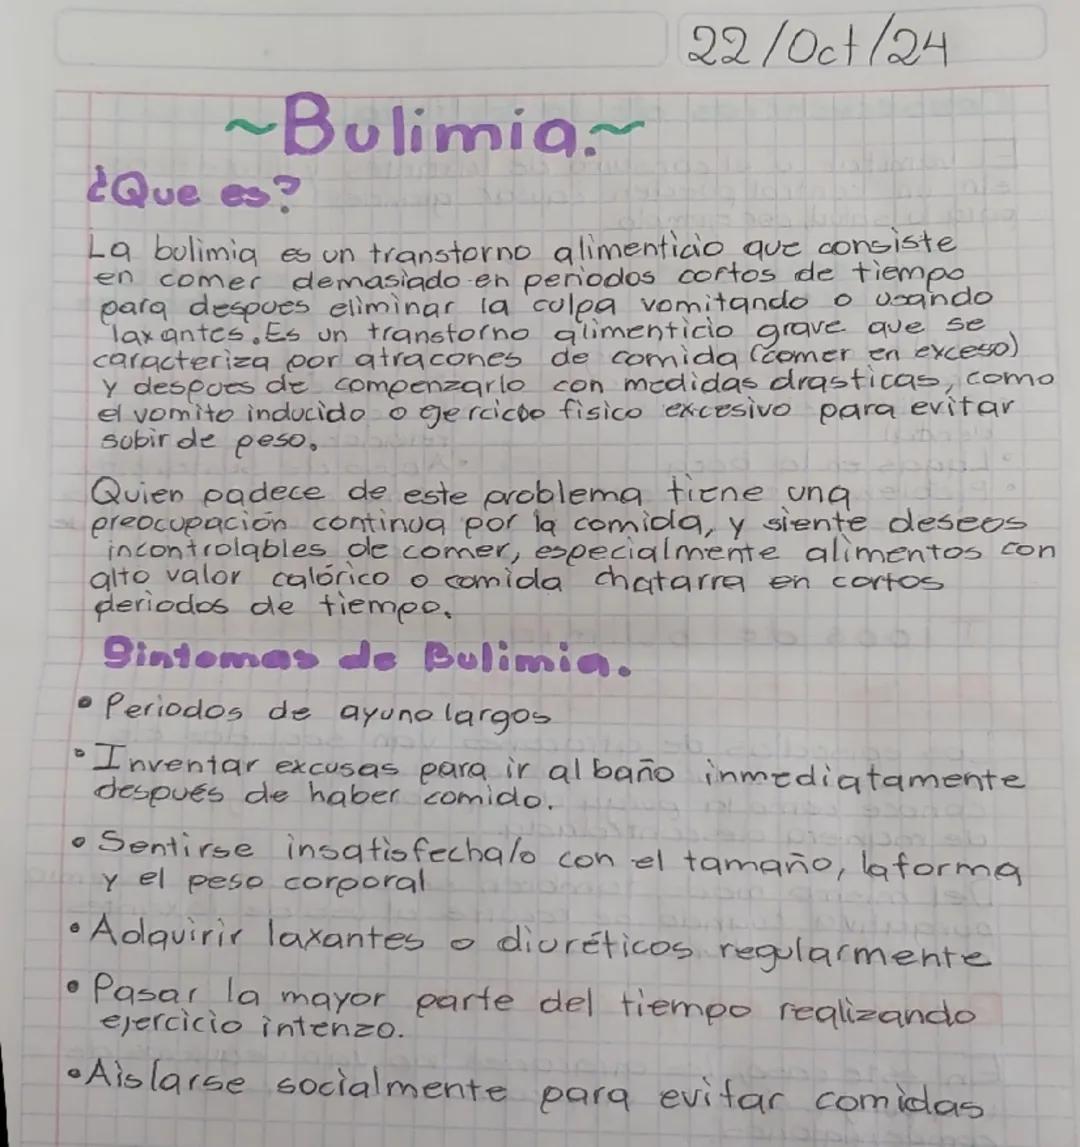 22/Oct/24
~Bulimia.~
¿Que es?
La bulimia es un transtorno alimenticio que consiste
en comer demasiado en periodos cortos de tiempo
para despues eliminar la culpa vomitando o usando
laxantes. Es un transtorno alimenticio grave que se
caracteriza por atracones de comida (comer en exceso)
y despues de compenzarlo con medidas drasticas, como
el vomito inducido o gercicio fisico excesivo para evitar
subir de peso.
Quien padece de este problema tiene una
preocupación continua por la comida, y siente deseos
incontrolables de comer, especialmente alimentos con
alto valor calórico o comida chatarra en cortos
periodos de tiempo.
Sintomas de Bulimia.
• Periodos de ayuno largos
• Inventar excusas para ir al baño inmediatamente
después de haber comido.
• Sentirse insatisfecha/o con el tamaño, la forma
y el peso corporal
• Adquirir laxantes o diuréticos regularmente
• Pasar la mayor parte del tiempo realizando
ejercicio intenzo.
• Aislarse socialmente para evitar comidas